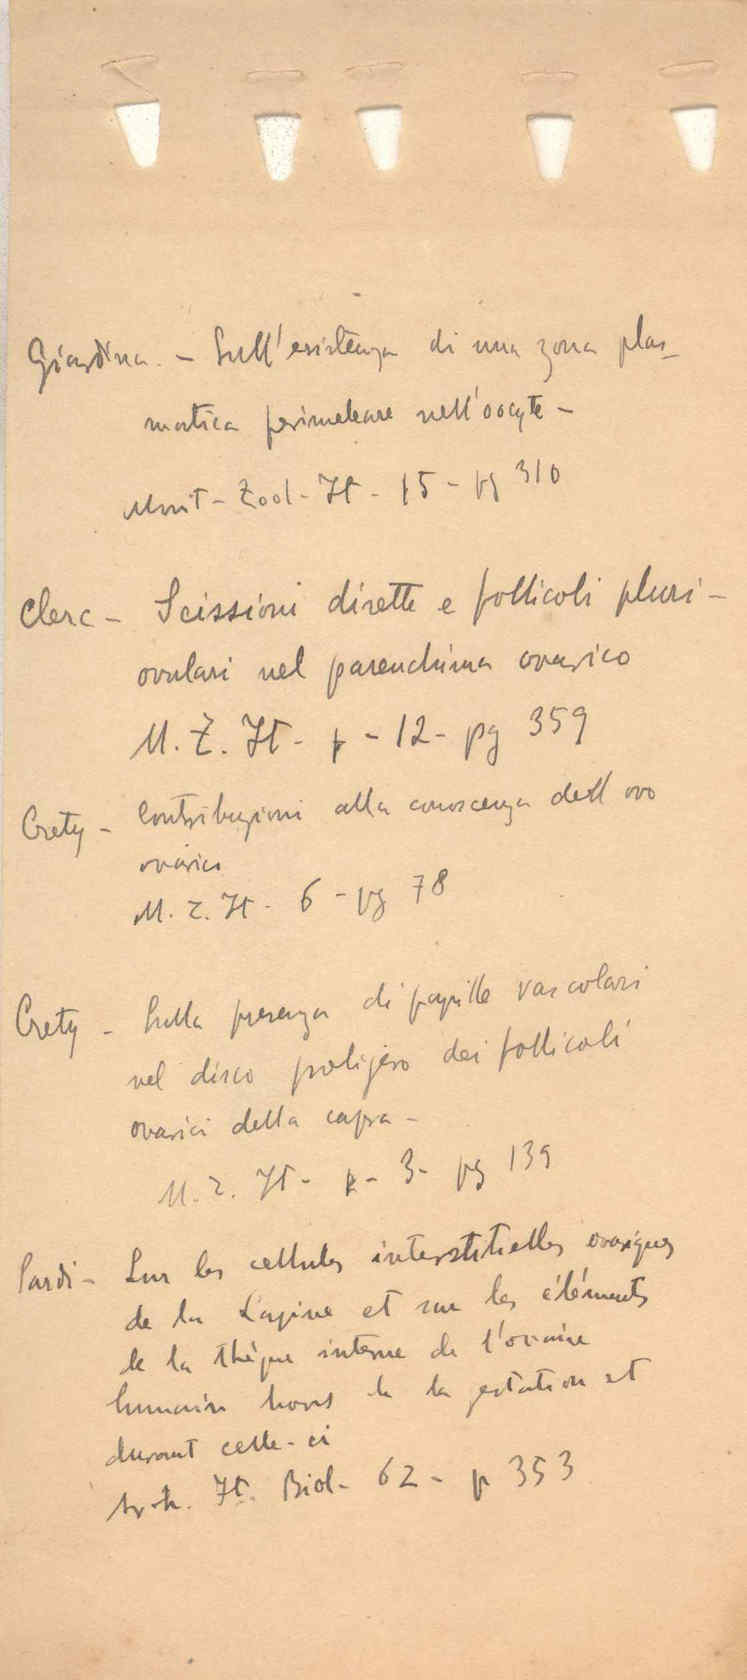 Giardina. - Sull'esistenza di una zona plas-
matica perinucleare nell'oocyte -
Monit - Zool - It - 15 - pg 310
Clerc - Scissioni dirette e follicoli pluri-
ovulari nel parenchima ovarico
M. Z. It - p - 12 - pg 359
Crety - Contribuzioni alla conoscenza dell ovo
ovarico
M. Z. It - 6 - pg 78
Crety - Sulla presenza di papille vascolari
nel disco proligero dei follicoli
ovarici della capra -
M. Z. It - p - 3 - pg 139
Pardi - Sur les cellules interstitielles ovariques
de la Lapine et sur les éléments
de la thèque interne de l'ovaire
humain hors de la gestation et
durant celle-ci
Arch. It. Biol - 62 - p 353